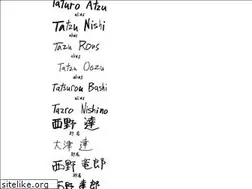 Taturo Atzu
alias
Tatzu Nishi
alias
Tazu Rous
alias
Tatzu Oozu
alias
Tatsurou Bashi
alias
Tazro Nishino
西野 達
別名
大津 達
別名
西野 竜郎
別名
西野 達郎
sitelike.org